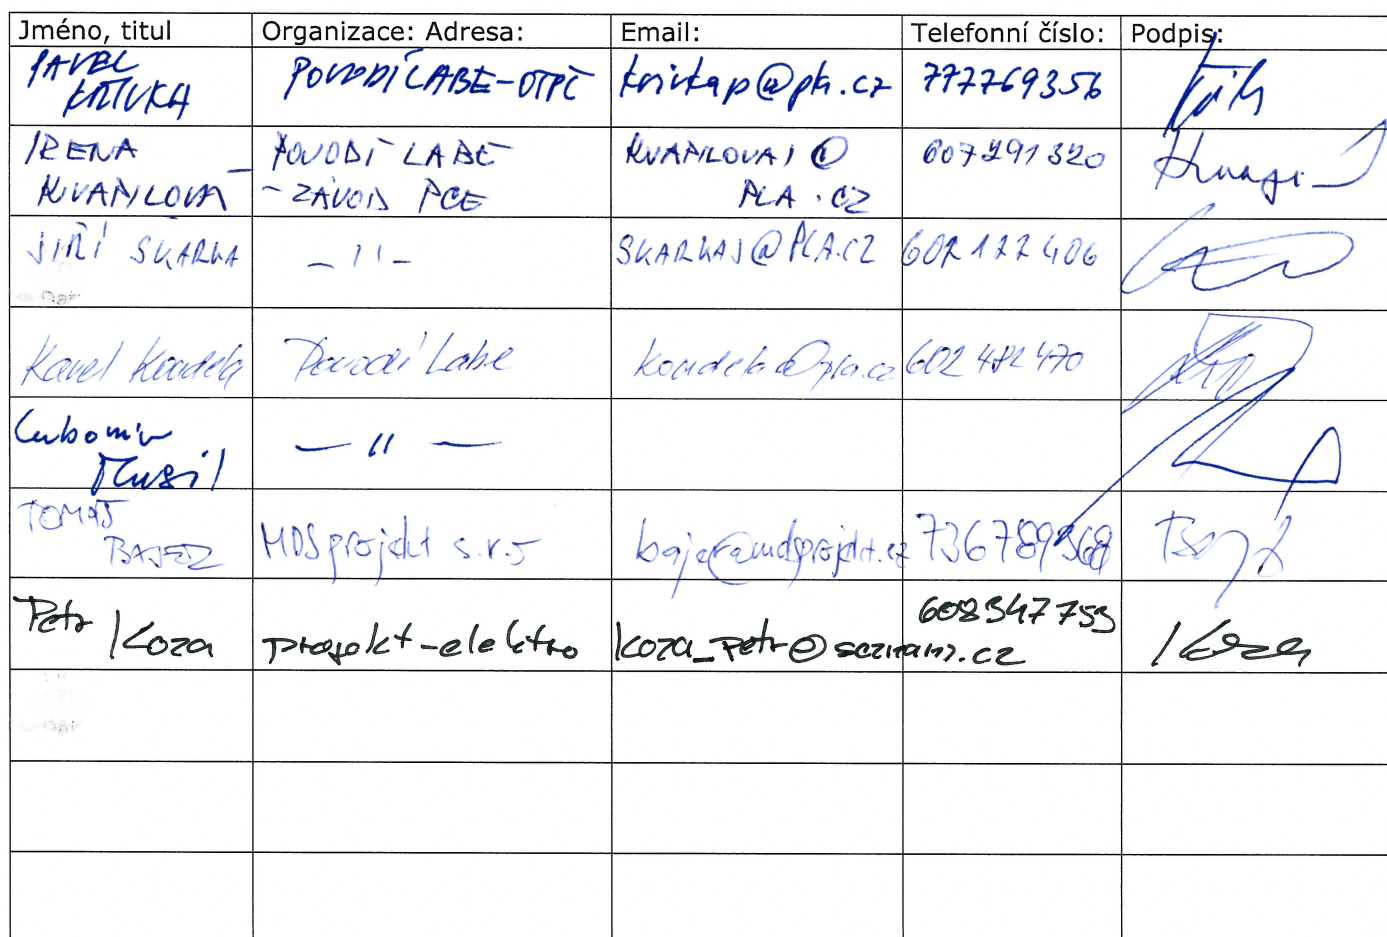 Jméno, titul Organizace: Adresa: Email: Telefonní číslo: Podpis:
PAVEL KŘIVKA POVODÍ LABE-OTPČ krivkap@pla.cz 777769356
IRENA KVAPILOVÁ POVODÍ LABE - ZÁVOD PCE KVAPILOVAI@PLA.CZ 607291320
JIŘÍ SKARKA - " - SKARKAJ@PLA.CZ 602122406
Karel Koudela Povodí Labe koudela@pla.cz 602 482 470
Lubomír Musil - " -
TOMÁŠ BAJER MDS projekt s.r.o bajer@mdsprojekt.cz
Petr Koza projekt-elektro koza_petr@seznam.cz 608347753 Koza